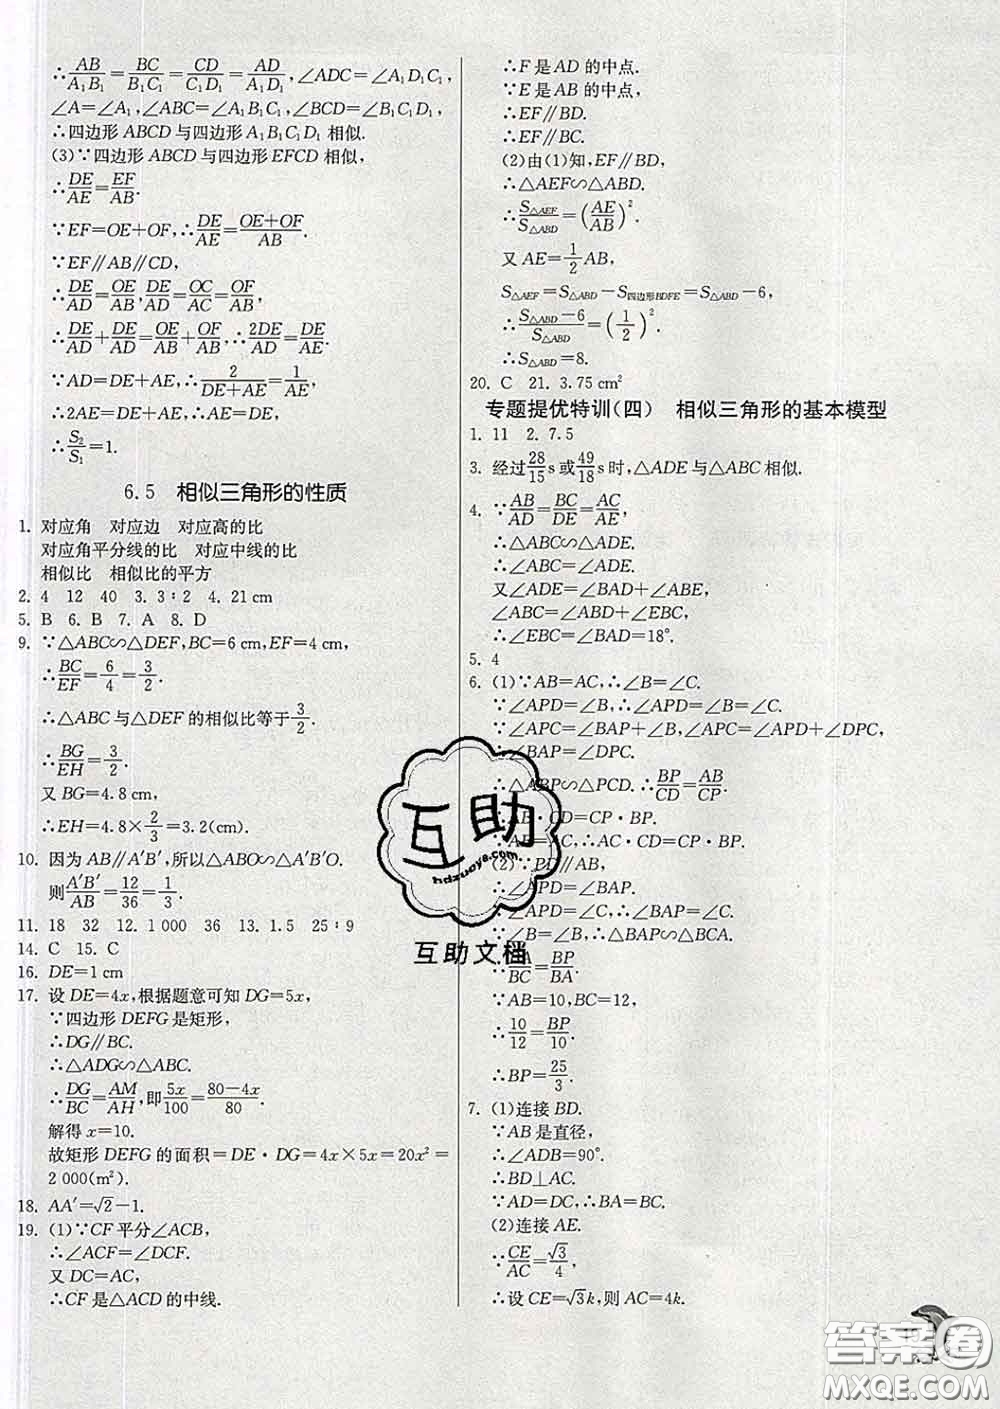 ∴AB/A₁B₁=BC/B₁C₁=CD/C₁D₁=AD/A₁D₁,∠ADC=∠A₁D₁C₁,
∠A=∠A₁,∠ABC=∠A₁B₁C₁,∠BCD=∠B₁C₁D₁,
∴四边形ABCD与四边形A₁B₁C₁D₁相似.
(3)∵四边形ABCD与四边形EFCD相似,
∴DE/AE=EF/AB.
∵EF=OE+OF,∴DE/AE=(OE+OF)/AB.
∵EF∥AB∥CD,
∴DE/AD=OE/AB,DE/AD=OC/AC=OF/AB,
∴DE/AD+DE/AD=OE/AB+OF/AB,∴2DE/AD=DE/AE.
∵AD=DE+AE,∴2/(DE+AE)=1/AE,
∴2AE=DE+AE,∴AE=DE.
∴S₂/S₁=1.
6.5 相似三角形的性质
1. 对应角 对应边 对应高的比
对应角平分线的比 对应中线的比
相似比 相似比的平方
2. 4 12 40 3. 3∶2 4. 21 cm
5. B 6. B 7. A 8. D
9. ∵△ABC∽△DEF,BC=6 cm,EF=4 cm,
∴BC/EF=6/4=3/2.
∴△ABC与△DEF的相似比等于3/2.
∴BG/EH=3/2.
又BG=4.8 cm,
∴EH=4.8×2/3=3.2(cm).
10. 因为AB∥A′B′,所以△ABO∽△A′B′O.
则A′B′/AB=12/36=1/3.
11. 18 32 12. 1 000 36 13. 1.5 25∶9
14. C 15. C
16. DE=1 cm
17. 设DE=4x,根据题意可知DG=5x,
∵四边形DEFG是矩形,
∴DG∥BC.
∴△ADG∽△ABC.
∴DG/BC=AM/AH,即5x/100=(80-4x)/80.
解得x=10.
故矩形DEFG的面积=DE·DG=4x×5x=20x²=
2 000(m²).
18. AA′=√2-1.
19. (1)∵CF平分∠ACB,
∴∠ACF=∠DCF.
又DC=AC,
∴CF是△ACD的中线.
∴F是AD的中点.
∵E是AB的中点,
∴EF∥BD.
∴EF∥BC.
(2)由(1)知,EF∥BD,
∴△AEF∽△ABD.
∴S△AEF/S△ABD=(AE/AB)².
又AE=1/2AB,
S△AEF=S△ABD-S四边形BDFE=S△ABD-6,
∴(S△ABD-6)/S△ABD=(1/2)².
∴S△ABD=8.
20. C 21. 3.75 cm²
专题提优特训(四) 相似三角形的基本模型
1. 11 2. 7.5
3. 经过28/15 s或49/18 s时,△ADE与△ABC相似.
4. ∵AB/AD=BC/DE=AC/AE,
∴△ABC∽△ADE.
∴∠ABC=∠ADE.
又∠ADE=∠BAD+∠ABE,
∠ABC=∠ABD+∠EBC,
∴∠EBC=∠BAD=18°.
5. 4
6. (1)∵AB=AC,∴∠B=∠C.
∵∠APD=∠B,∴∠APD=∠B=∠C.
∵∠APC=∠BAP+∠B,∠APC=∠APD+∠DPC,
∴∠BAP=∠DPC.
∴△ABP∽△PCD.∴BP/CD=AB/CP.
∴AB·CD=CP·BP.
∵AB=AC,∴AC·CD=CP·BP.
(2)∵PD∥AB,
∴∠APD=∠BAP.
∵∠APD=∠C,∴∠BAP=∠C.
∵∠B=∠B,∴△BAP∽△BCA.
∴BA/BC=BP/BA.
∵AB=10,BC=12,
∴10/12=BP/10.
∴BP=25/3.
7. (1)连接BD.
∵AB是直径,
∴∠ADB=90°.
∴BD⊥AC.
∵AD=DC,∴BA=BC.
(2)连接AE.
∵CE/AC=√3/4,
∴设CE=√3k,则AC=4k.
互助
hdzuoye.com
互助文档
答案圈
MXQE.COM